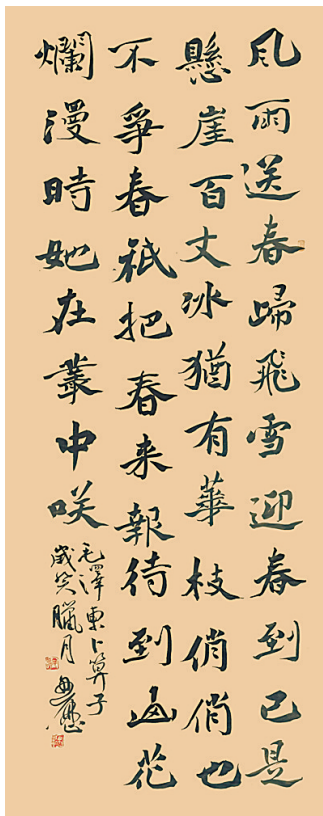 风雨送春歸飛雪迎春到已是
懸崖百丈冰猶有華枝俏俏也
不爭春祇把春来報待到山花
爛漫時她在叢中咲
毛澤東卜算子
歲癸臘月